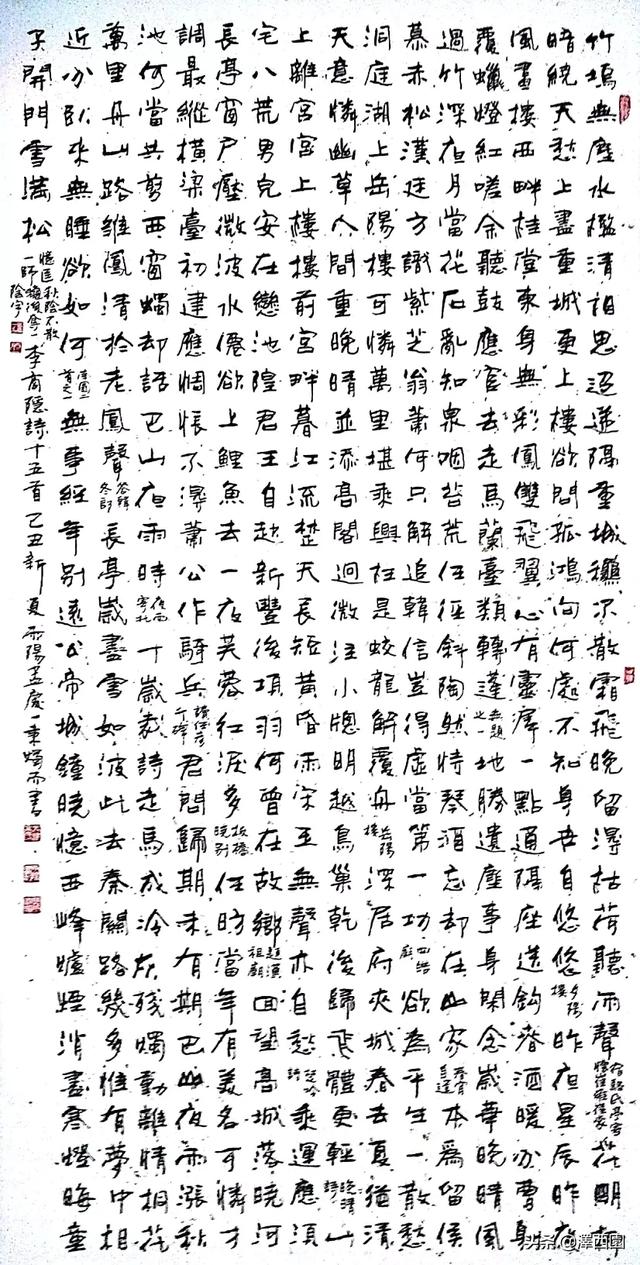 竹塢無塵水檻清相思迢遞隔重城穐不散霜飛晚留得枯荷聽雨聲宿駱氏亭寄懷崔雍崔袞花明柳
暗繞天愁上盡重城更上樓欲問孤鴻向何處不知身世自悠悠夕陽樓昨夜星辰昨夜
風畫樓西畔桂堂東身無彩鳳雙飛翼心有靈犀一點通隔座送鈎春酒暖分曹射
覆蠟燈紅嗟余聽鼓應官去走馬蘭臺類轉蓬無題之一地勝遺塵事身閑念歲華晚晴風
過竹深夜月當花石亂知泉咽苔荒任徑斜陶然恃琴酒忘却在山家春宵自遣本為留侯
慕赤松漢廷方識紫芝翁蕭何只解追韓信豈得虛當第一功四皓廟欲為平生一散愁
洞庭湖上岳陽樓可憐萬里堪乘興枉是蛟龍解覆舟岳陽樓深居府夾城春去夏猶清
天意憐幽草人間重晚晴並添高閣迥微注小牕明越鳥巢乾後歸飛體更輕晚晴山
上離宮宮上樓樓前宮畔暮江流楚天長短黃昏雨宋玉無聲亦自愁楚吟乘運應須
宅八荒男兒安在戀池隍君王自起新豐後項羽何曾在故鄉題漢祖廟回望高城落曉河
長亭窗戶壓微波水僊欲上鯉魚去一夜芙蓉紅淚多板橋曉別任昉當年有美名可憐才
調最縱橫梁臺初建應惆悵不得蕭公作騎兵讀任彥昇碑君問歸期未有期巴山夜雨漲秋
池何當共剪西窗燭却話巴山夜雨時夜雨寄北十歲裁詩走馬成冷灰殘燭動離情桐花
萬里丹山路雛鳳清於老鳳聲答韓冬郎長亭歲盡雪如波此去秦關路幾多惟有夢中相
近分臥來無睡欲如何首之一無事經年別遠公帝城鐘曉憶西峰爐煙消盡寒燈晦童
子開門雪滿松憶匡一師秋陰不散陰字李商隱詩十五首己丑新夏雨陽孟慶一秉燭而書
头条@澤西園